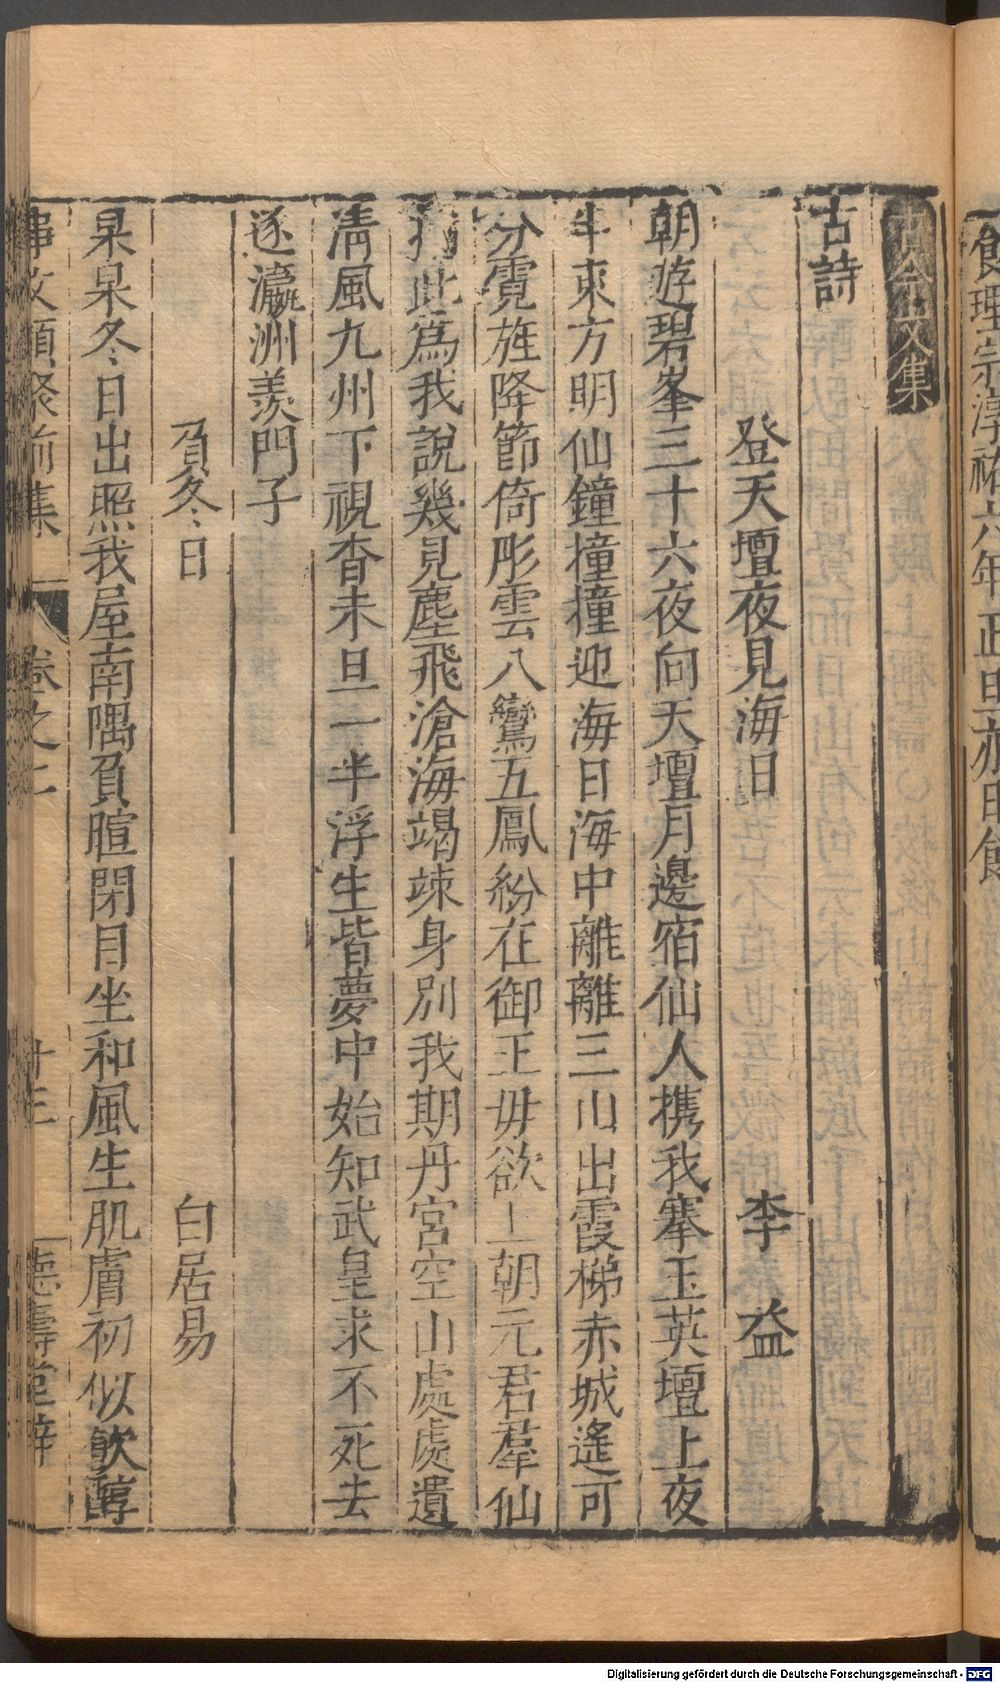 古今文集
古詩
登天壇夜見海日 李益
朝遊碧峯三十六夜向天壇月邊宿仙人携我搴玉英壇上夜
半東方明仙鐘撞撞迎海日海中離離三山出霞梯赤城遙可
分霓旌降節倚彤雲八鸞五鳳紛在御王毋欲上朝元君羣仙
指此爲我說幾見塵飛滄海竭竦身別我期丹宮空山處處遺
清風九州下視杳未旦一半浮生皆夢中始知武皇求不死去
逐瀛洲羨門子
負冬日 白居易
杲杲冬日出照我屋南隅負暄閉目坐和風生肌膚初似飲醇
事文類聚前集 卷之二 十三 德壽堂梓
Digitalisierung gefördert durch die Deutsche Forschungsgemeinschaft - DFG